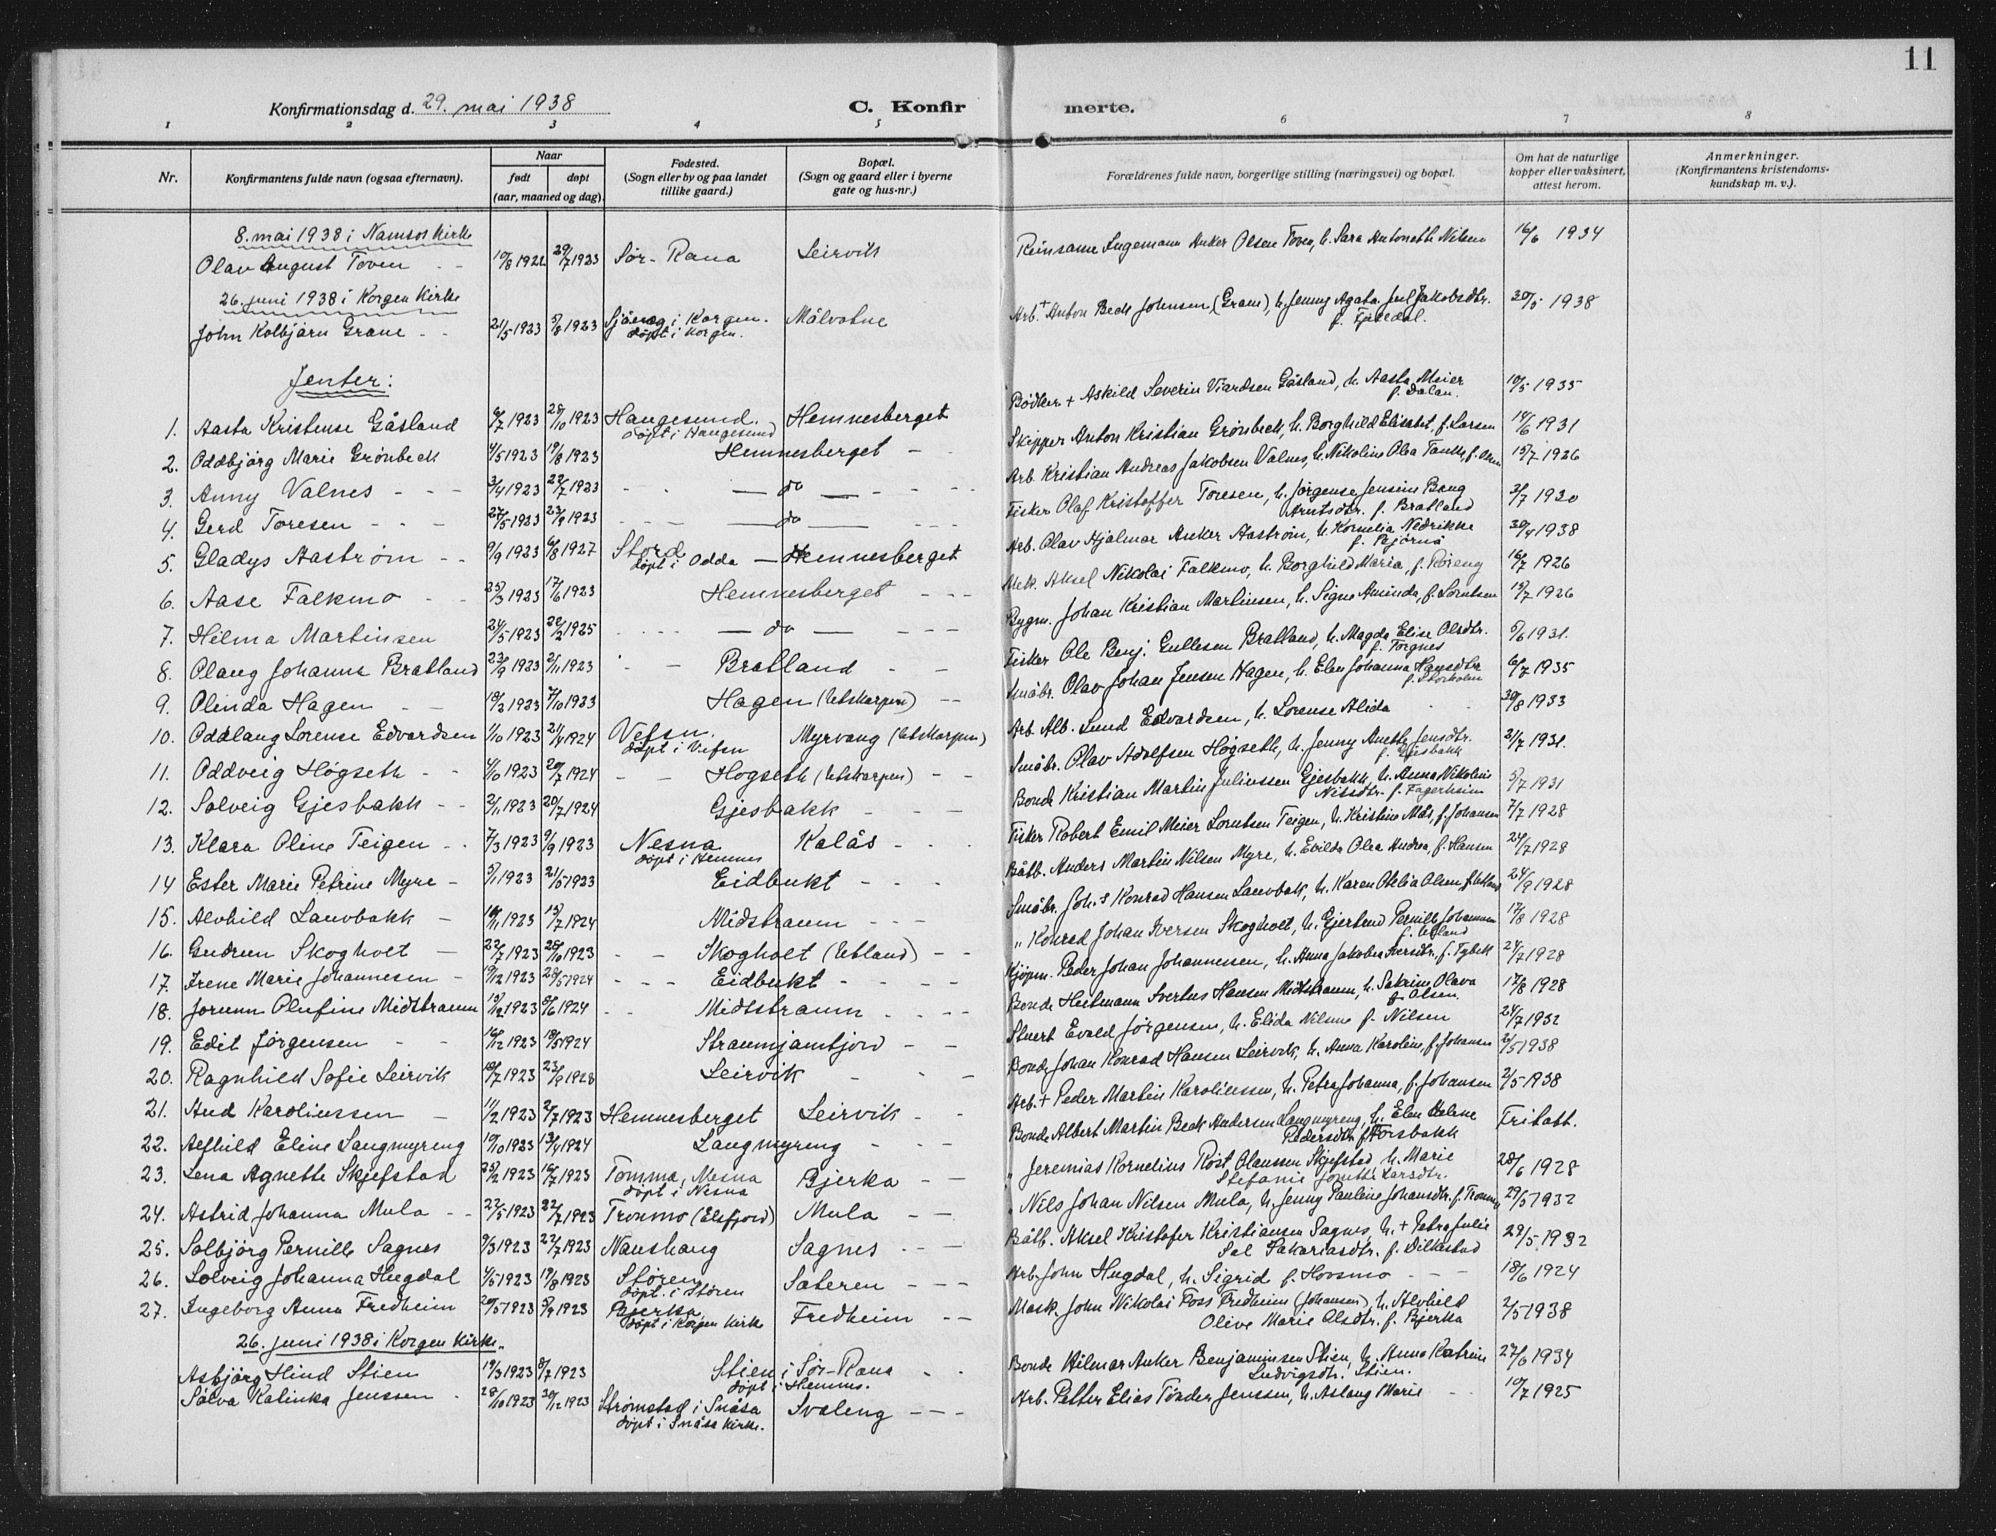 11
Konfirmationsdag d. 29. mai 1938
C. Konfirmerte.
1 2 3 4 5 6 7 8
Nr.
Konfirmantens fulde navn (ogsaa efternavn).
Naar
født døpt
(aar, maaned og dag)
Fødested.
(Sogn eller by og paa landet
tillike gaard.)
Bopæl.
(Sogn og gaard eller i byerne
gate og hus-nr.)
Forældrenes fulde navn, borgerlige stilling (næringsvei) og bopæl.
Om hat de naturlige
kopper eller vaksinert,
attest herom.
Anmerkninger.
(Konfirmantens kristendoms-
kundskap m. v.).
8. mai 1938 i Namsos kirke
Olav August Toven 10/8 1922 29/7 1923 Sør-Rana Leirvik Ingemann Anker Olsen Toven, h. Sara Antonette Nilsen 16/6 1934
26. juni 1938 i Korgen Kirke
John Kolbjørn Grane 21/5 1923 5/8 1923 i Korgen. døpt i Korgen. Målvatne Arb. + Anton Beck Johnsen (Grane), h. Jenny Agata Juel Jakobsdtr. 20/5 1938
Jenter:
1. Aasta Kristense Gåsland 6/7 1923 28/10 1923 Haugesund. døpt i Haugesund Hemnesberget Bødker + Askild Severin Viardsen Gåsland, h. Aasta Meier f. Dalan. 10/5 1935
2. Oddbjørg Marie Grønbeck 4/5 1923 19/8 1923 Hemnesberget Skipper Anton Kristian Grønbeck, h. Borghild Elisabet, f. Larsen 14/6 1931
3. Anny Valnes 3/4 1923 22/7 1923 do Arb. Kristian Andreas Jakobsen Valnes, h. Nikoline Olea 15/7 1926
4. Gerd Toresen 27/5 1923 23/9 1923 do Fisker Olaf Kristoffer Toresen, h. Jørgense Jensine Bang Arntsdtr. f. Bratland 2/7 1930
5. Gladys Aastrøm 9/9 1923 6/8 1927 Stord døpt i Odda Hemnesberget Arb. Olav Hjalmar Anker Aastrøm, h. Kornelia Nedrikke f. Bjørnå 30/4 1938
6. Aase Falkmo 25/3 1923 17/6 1923 Hemnesberget Mek. Aksel Nikolai Falkmo, h. Borghild Maria, f. Røreng 16/7 1926
7. Hilma Martinsen 24/5 1923 22/2 1925 do Bygm. Johan Kristian Martinsen, h. Signe Aminda, f. Lorntsen 15/7 1926
8. Olaug Johanna Bratland 23/9 1923 2/11 1923 Bratland Fisker Ole Benj. Gullesen Bratland, h. Magda Elise Olsdtr. f. Forsnes 5/6 1931.
9. Olinda Hagen 18/2 1923 7/10 1923 Hagen (Utskarpen) Småbr. Olav Johan Jensen Hagen, h. Elen Johanna Hansdtr. f. Storholm 6/7 1935
10. Oddlaug Lorense Edvardsen 1/10 1923 21/4 1924 Vefsn. døpt i Vefsn Myrvang (Utskarpen) Arb. Alb. Lund Edvardsen, h. Lorense Alida 30/8 1933
11. Oddveig Høgseth 4/10 1923 20/7 1924 Høgseth (Utskarpen) Småbr. Olav Adolfsen Høgseth, h. Jenny Anette Jensdtr. f. Gjesbakk 21/7 1931.
12. Solveig Gjesbakk 2/11 1923 20/7 1924 Gjesbakk Bonde Kristian Martin Juliussen Gjesbakk, h. Anna Nikoline Nilsdtr. f. Fagerheim 5/7 1931
13. Klara Oline Teigen 7/3 1923 9/9 1923 Nesna døpt i Hemnes Kalås Fisker Robert Emil Meier Lorntsen Teigen, h. Kristine Mås, f. Johansen 7/7 1928
14 Ester Marie Petrine Myre 5/1 1923 21/5 1923 Eidbukt Båtb. Anders Martin Nilsen Myre, h. Evilda Olea Andrea, f. Hansen 24/7 1928
15. Alvhild Lauvbakk 16/11 1923 15/7 1924 Midstraum Småbr. Joh. + Konrad Hansen Lauvbakk, h. Karen Otelia Olsen, 24/9 1928
16. Gudrun Skogholt 22/7 1923 28/10 1923 Skogholt (Utland) „ Konrad Johan Iversen Skogholt, h. Gjertrud Pernille Johannesen f. Utland 12/8 1928
17. Irene Marie Johannesen 19/12 1923 28/5 1924 Eidbukt Kjøpm. Peder Johan Johannessen, h. Anna Jakobea Iversdtr. f. Tybekk 24/7 1928
18. Jorunn Olufine Midtstraum 15/12 1923 9/6 1924 Midtstraum Bonde Heitmann Svertus Hansen Midtstraum, h. Sakrine Olava f. Olsen. 12/8 1928
19. Edit Jørgensen 16/12 1923 18/5 1924 Straumjamtjord Stuert Evald Jørgensen, h. Elida Nilsine f. Nilsen 24/7 1932
20. Ragnhild Sofie Leirvik 18/7 1923 23/9 1928 Leirvik Bonde Johan Konrad Hansen Leirvik, h. Anna Karoline, f. Johansen 2/5 1938
21. Aud Karoliussen 11/2 1923 2/7 1923 Hemnesberget Leirvik Arb. + Peder Martin Karoliussen, h. Petra Johanna, f. Johansen 2/5 1938
22. Alfhild Eline Langmyreng 19/10 1923 13/4 1924 Langmyreng Bonde Albert Martin Beck Andersen Langmyreng, h. Elen Helene Pedersdtr. f. Forsbakk Fritatt.
23. Lena Agnette Skjefstad 25/2 1923 16/7 1923 Tomma, Nesna døpt i Nesna Bjerka „ Jeremias Kornelius Røst Olaussen Skjefstad h. Marie Stefanie Larsdtr. 28/6 1928
24. Astrid Johanna Mula 22/5 1923 22/7 1923 Tronmo (Elsfjord) Mula „ Nils Johan Nilsen Mula, h. Jenny Pauline Johansdtr. f. Tronmo 29/5 1932
25. Solbjørg Pernille Sagnes 9/3 1923 22/7 1923 Naushaug Sagnes Båtb. Aksel Kristofer Kristiansen Sagnes, h. + Petra Julie Sal. Sakariasdtr. f. Dilkestad 29/5 1932
26. Solveig Johanna Hugdal 4/5 1923 19/8 1923 Støren døpt i Støren Sæteren Arb. John Hugdal, h. Sigrid f. Hovsmo 18/6 1924
27. Ingeborg Anna Fredheim 20/5 1923 5/9 1923 Bjerka døpt i Korgen Kirke Fredheim Mask. John Nikolai Foss Fredheim (Johansen), h. Alvhild Olive Marie Olsdtr. f. Bjerka 2/5 1938
26. juni 1938 i Korgen Kirke.
Asbjørg Hind Stien 19/3 1923 8/7 1923 Stien i Sør-Rana døpt i Hemnes. Bonde Hilmar Anker Benjaminsen Stien, h. Anna Katrine Ludvigsdtr. Stien. 27/6 1934
Sølva Katinka Jenssen 28/10 1923 30/12 1923 Strømstad i Snåsa døpt i Snåsa kirke. Svaleng Arb. Petter Elias Tønder Jenssen, h. Aslaug Marie 10/7 1925